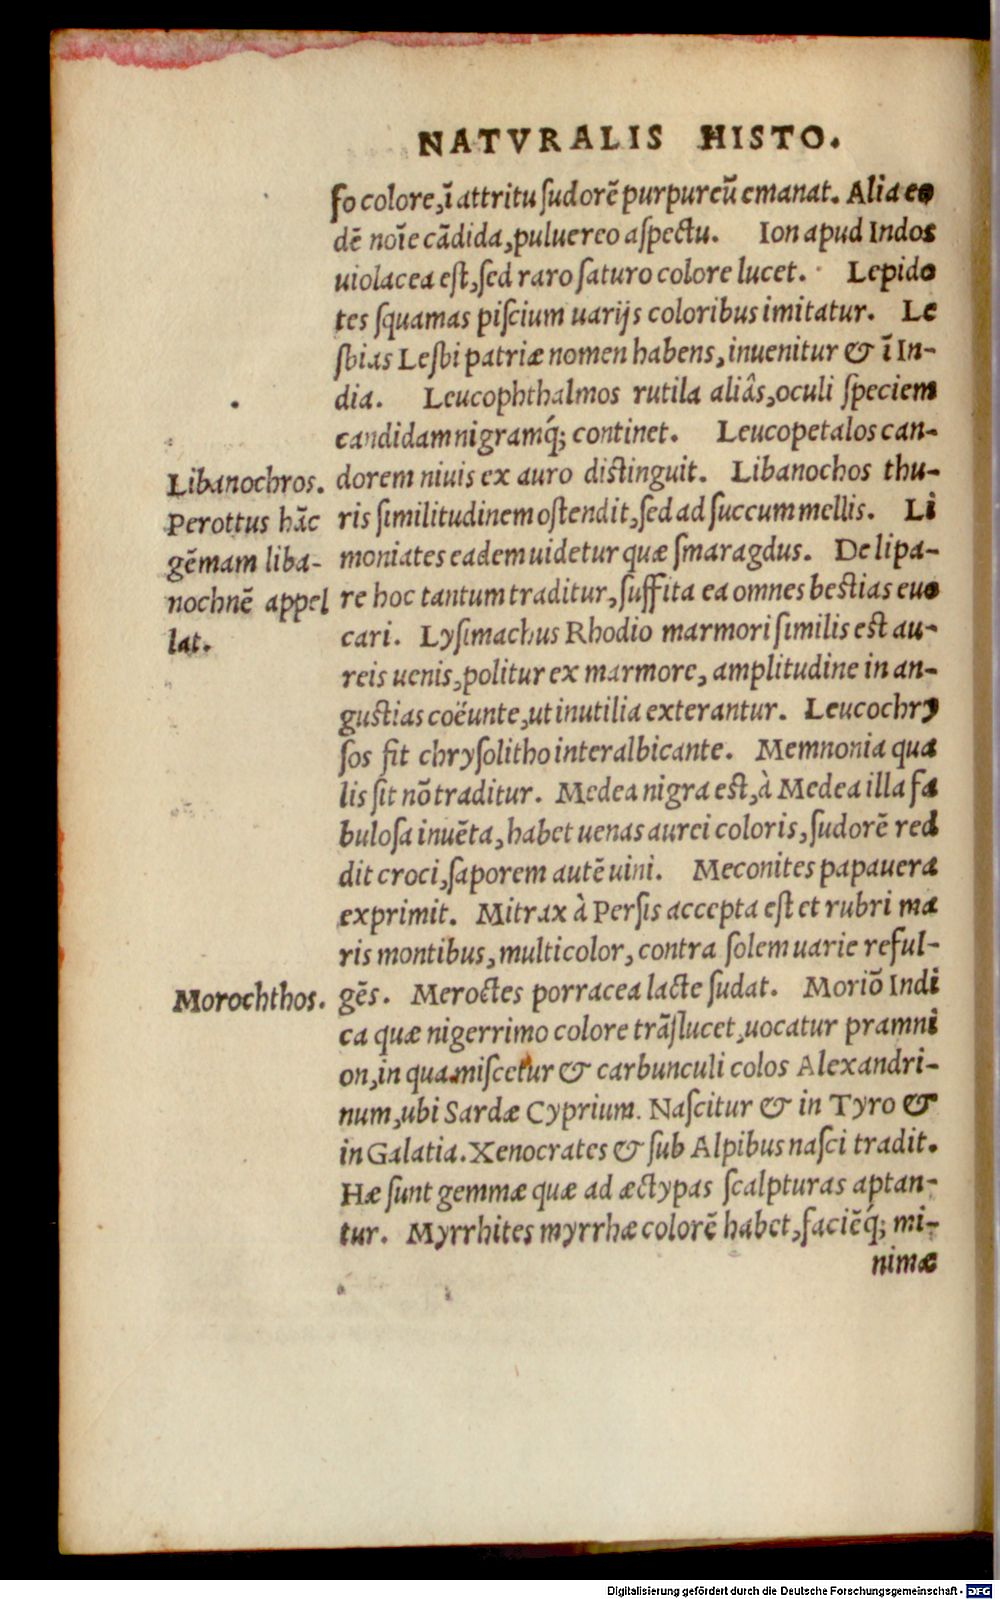 NATVRALIS HISTO.
ſo colore, ī attritu ſudorē purpureū emanat. Alia eo
dē noīe cādida, puluereo aſpectu. Ion apud Indos
uiolacea eſt, ſed raro ſaturo colore lucet. Lepido
tes ſquamas piſcium uarijs coloribus imitatur. Le
ſbias Leſbi patriæ nomen habens, inuenitur & ī In-
dia. Leucophthalmos rutila aliâs, oculi ſpeciem
candidam nigramq́; continet. Leucopetalos can-
dorem niuis ex auro diſtinguit. Libanochos thu-
ris ſimilitudinem oſtendit, ſed ad ſuccum mellis. Li
moniates eadem uidetur quæ ſmaragdus. De lipa-
re hoc tantum traditur, ſuffita ea omnes beſtias euo
cari. Lyſimachus Rhodio marmori ſimilis eſt au-
reis uenis, politur ex marmore, amplitudine in an-
guſtias coëunte, ut inutilia exterantur. Leucochry
ſos fit chryſolitho interalbicante. Memnonia qua
lis ſit nō traditur. Medea nigra eſt, à Medea illa fa
buloſa inuēta, habet uenas aurei coloris, ſudorē red
dit croci, ſaporem autē uini. Meconites papauera
exprimit. Mitrax à Perſis accepta eſt et rubri ma
ris montibus, multicolor, contra ſolem uarie reful-
gēs. Meroctes porracea lacte ſudat. Moriō Indi
ca quæ nigerrimo colore trāſlucet, uocatur pramni
on, in qua miſcetur & carbunculi colos Alexandri-
num, ubi Sardæ Cyprium. Naſcitur & in Tyro &
in Galatia. Xenocrates & ſub Alpibus naſci tradit.
Hæ ſunt gemmæ quæ ad æctypas ſcalpturas aptan-
tur. Myrrhites myrrhæ colorē habet, faciēq́; mi-
nimæ
Libanochros.
Perottus hāc
gēmam liba-
nochnē appel
lat.
Morochthos.
Digitalisierung gefördert durch die Deutsche Forschungsgemeinschaft - DFG